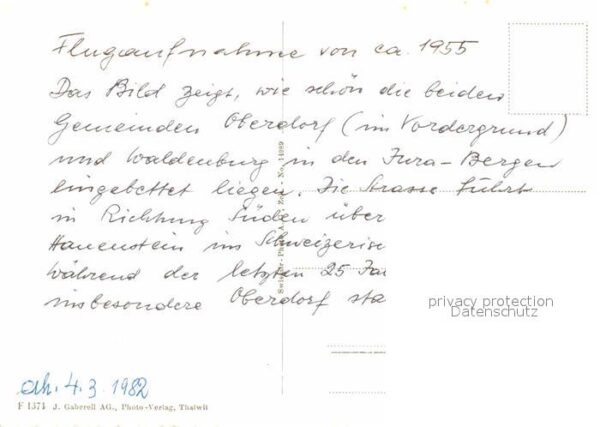 Flugaufnahme von ca. 1955
Das Bild zeigt, wie schön die beiden
Gemeinden Oberdorf (im Vordergrund)
und Waldenburg in den Jura-Bergen
eingebettet liegen. Die Strasse führt
in Richtung Süden über
Hauenstein ins Schweizerisc
Während der letzten 25 Ja
insbesondere Oberdorf sta
privacy protection
Datenschutz
4.3.1982
F 1374 J. Gaberell AG., Photo-Verlag, Thalwil